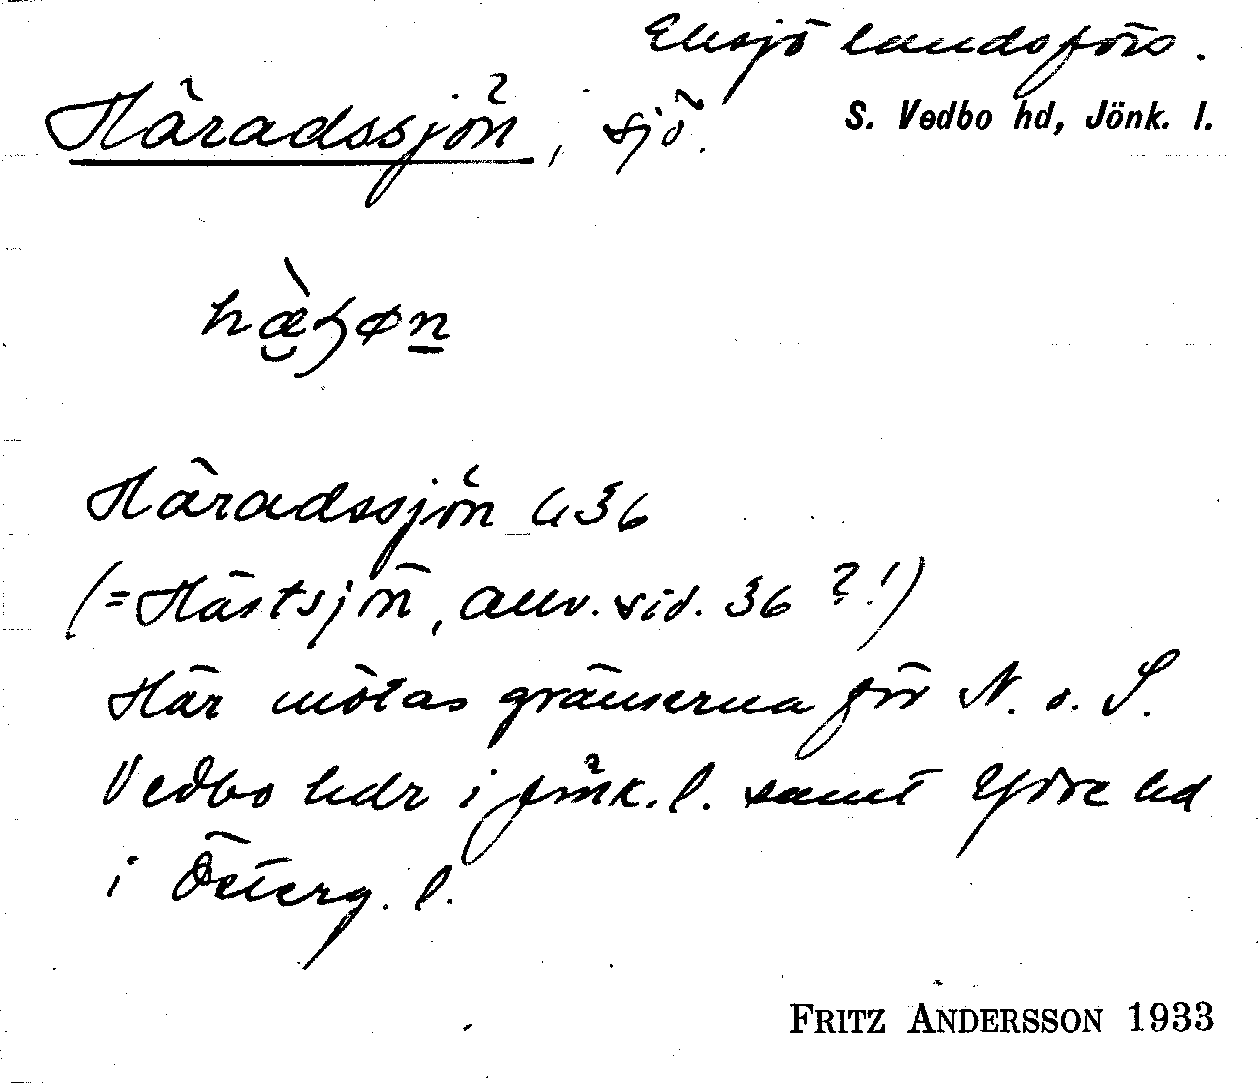 Eksjö landsförs.
Häradssjön, sjö.
S. Vedbo hd, Jönk. l.
Häradssjön G 36
(= Hästsjön, anv. sid. 36 ?!)
Här mötas gränserna för N. o. S.
Vedbo hdr i Jönk. l. samt Ydre hd
i Österg. l.
FRITZ ANDERSSON 1933